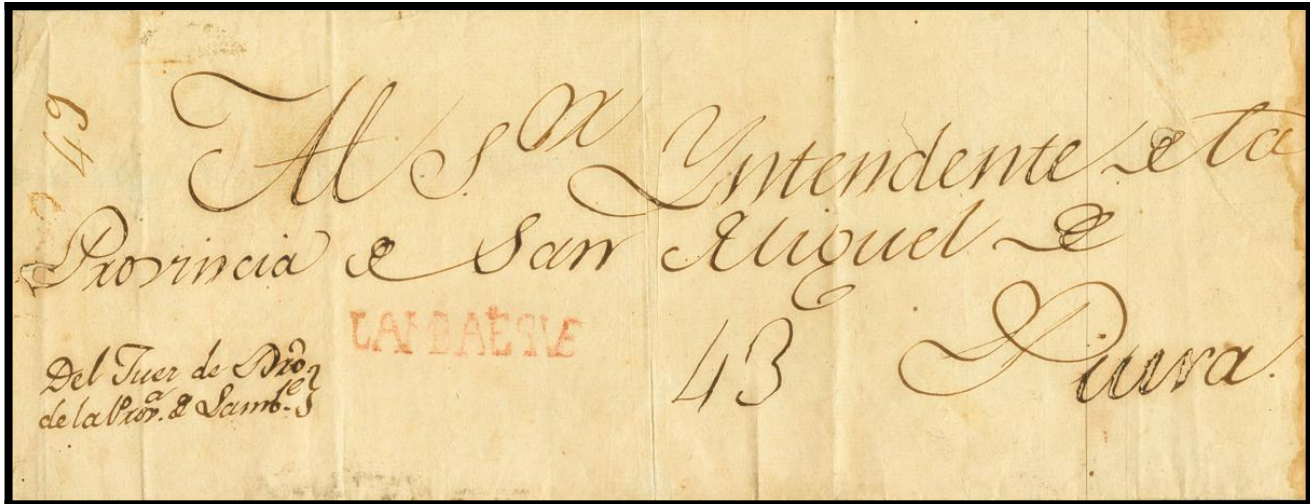 Al S.or Yntendente de la
Provincia de San Miguel de
Piura.
43
LAMBAĒQVE
Del Juez de
de la Prov.a de Lamb.e
49